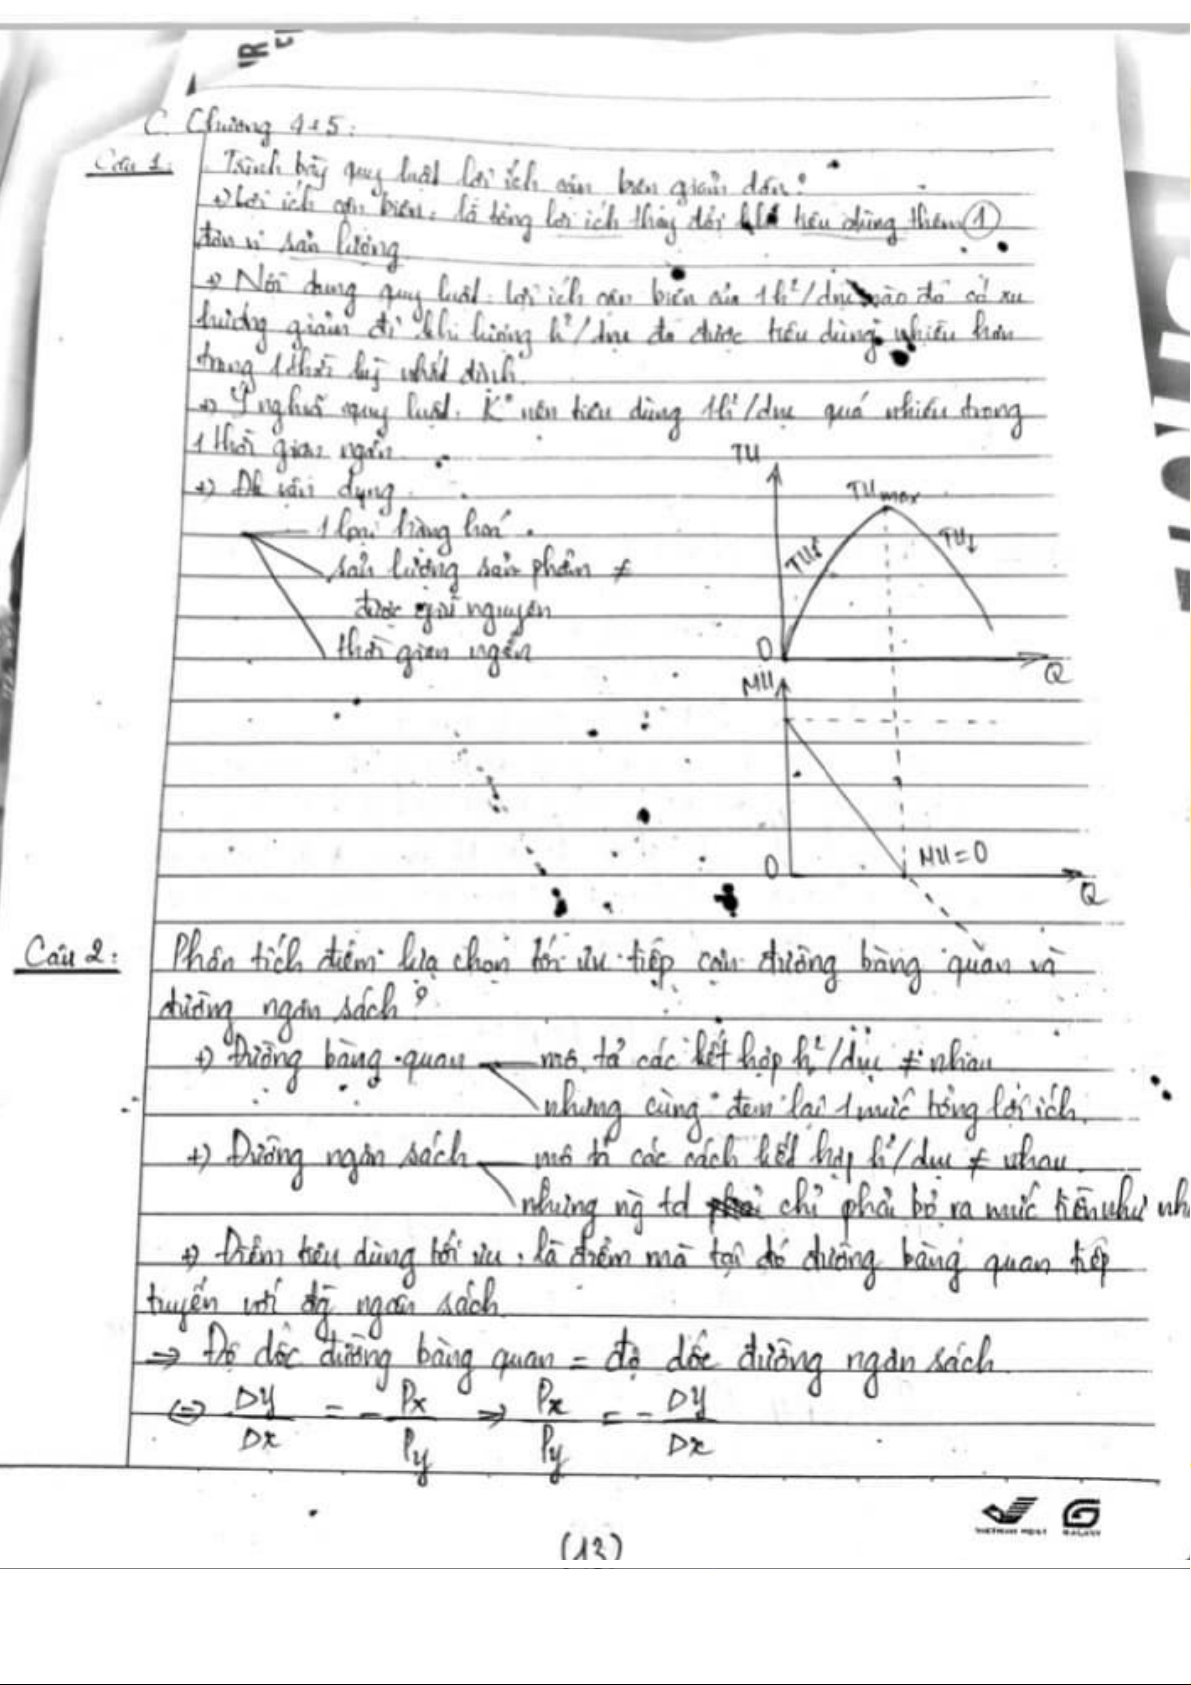 C. Chương 4+5:
Câu 1: Trình bày quy luật lợi ích cận biên giảm dần?
+) Lợi ích cận biên: là tổng lợi ích thay đổi khi tiêu dùng thêm 1
đơn vị sản lượng.
+) Nội dung quy luật: lợi ích cận biên của 1 h²/dvụ nào đó có xu
hướng giảm đi khi lượng h²/dvụ đó được tiêu dùng nhiều hơn
trong 1 thời kỳ nhất định.
+) Ý nghĩa quy luật: K° nên tiêu dùng 1 h²/dvụ quá nhiều trong
1 thời gian ngắn.
+) Đk vận dụng
1 loại hàng hoá.
sản lượng sản phẩm ≠
được giữ nguyên
thời gian ngắn
TU
TUmax
TU↑
TU↓
0
Q
MU
MU=0
0
Q
Câu 2: Phân tích điểm lựa chọn tối ưu tiếp cận đường bàng quan và
đường ngân sách?
+) Đường bàng quan mô tả các kết hợp h²/dvụ ≠ nhau
nhưng cùng đem lại 1 mức tổng lợi ích.
+) Đường ngân sách mô tả các cách kết hợp h²/dvụ ≠ nhau.
nhưng ng td chỉ phải bỏ ra mức tiền như nh
+) Điểm tiêu dùng tối ưu: là điểm mà tại đó đường bàng quan tiếp
tuyến với đg ngân sách.
⇒ Độ dốc đường bàng quan = độ dốc đường ngân sách.
⇔ Dy/Dx = - Px/Py ⇒ Px/Py = - Dy/Dx
VIETNAM POST GALAXY
(13)